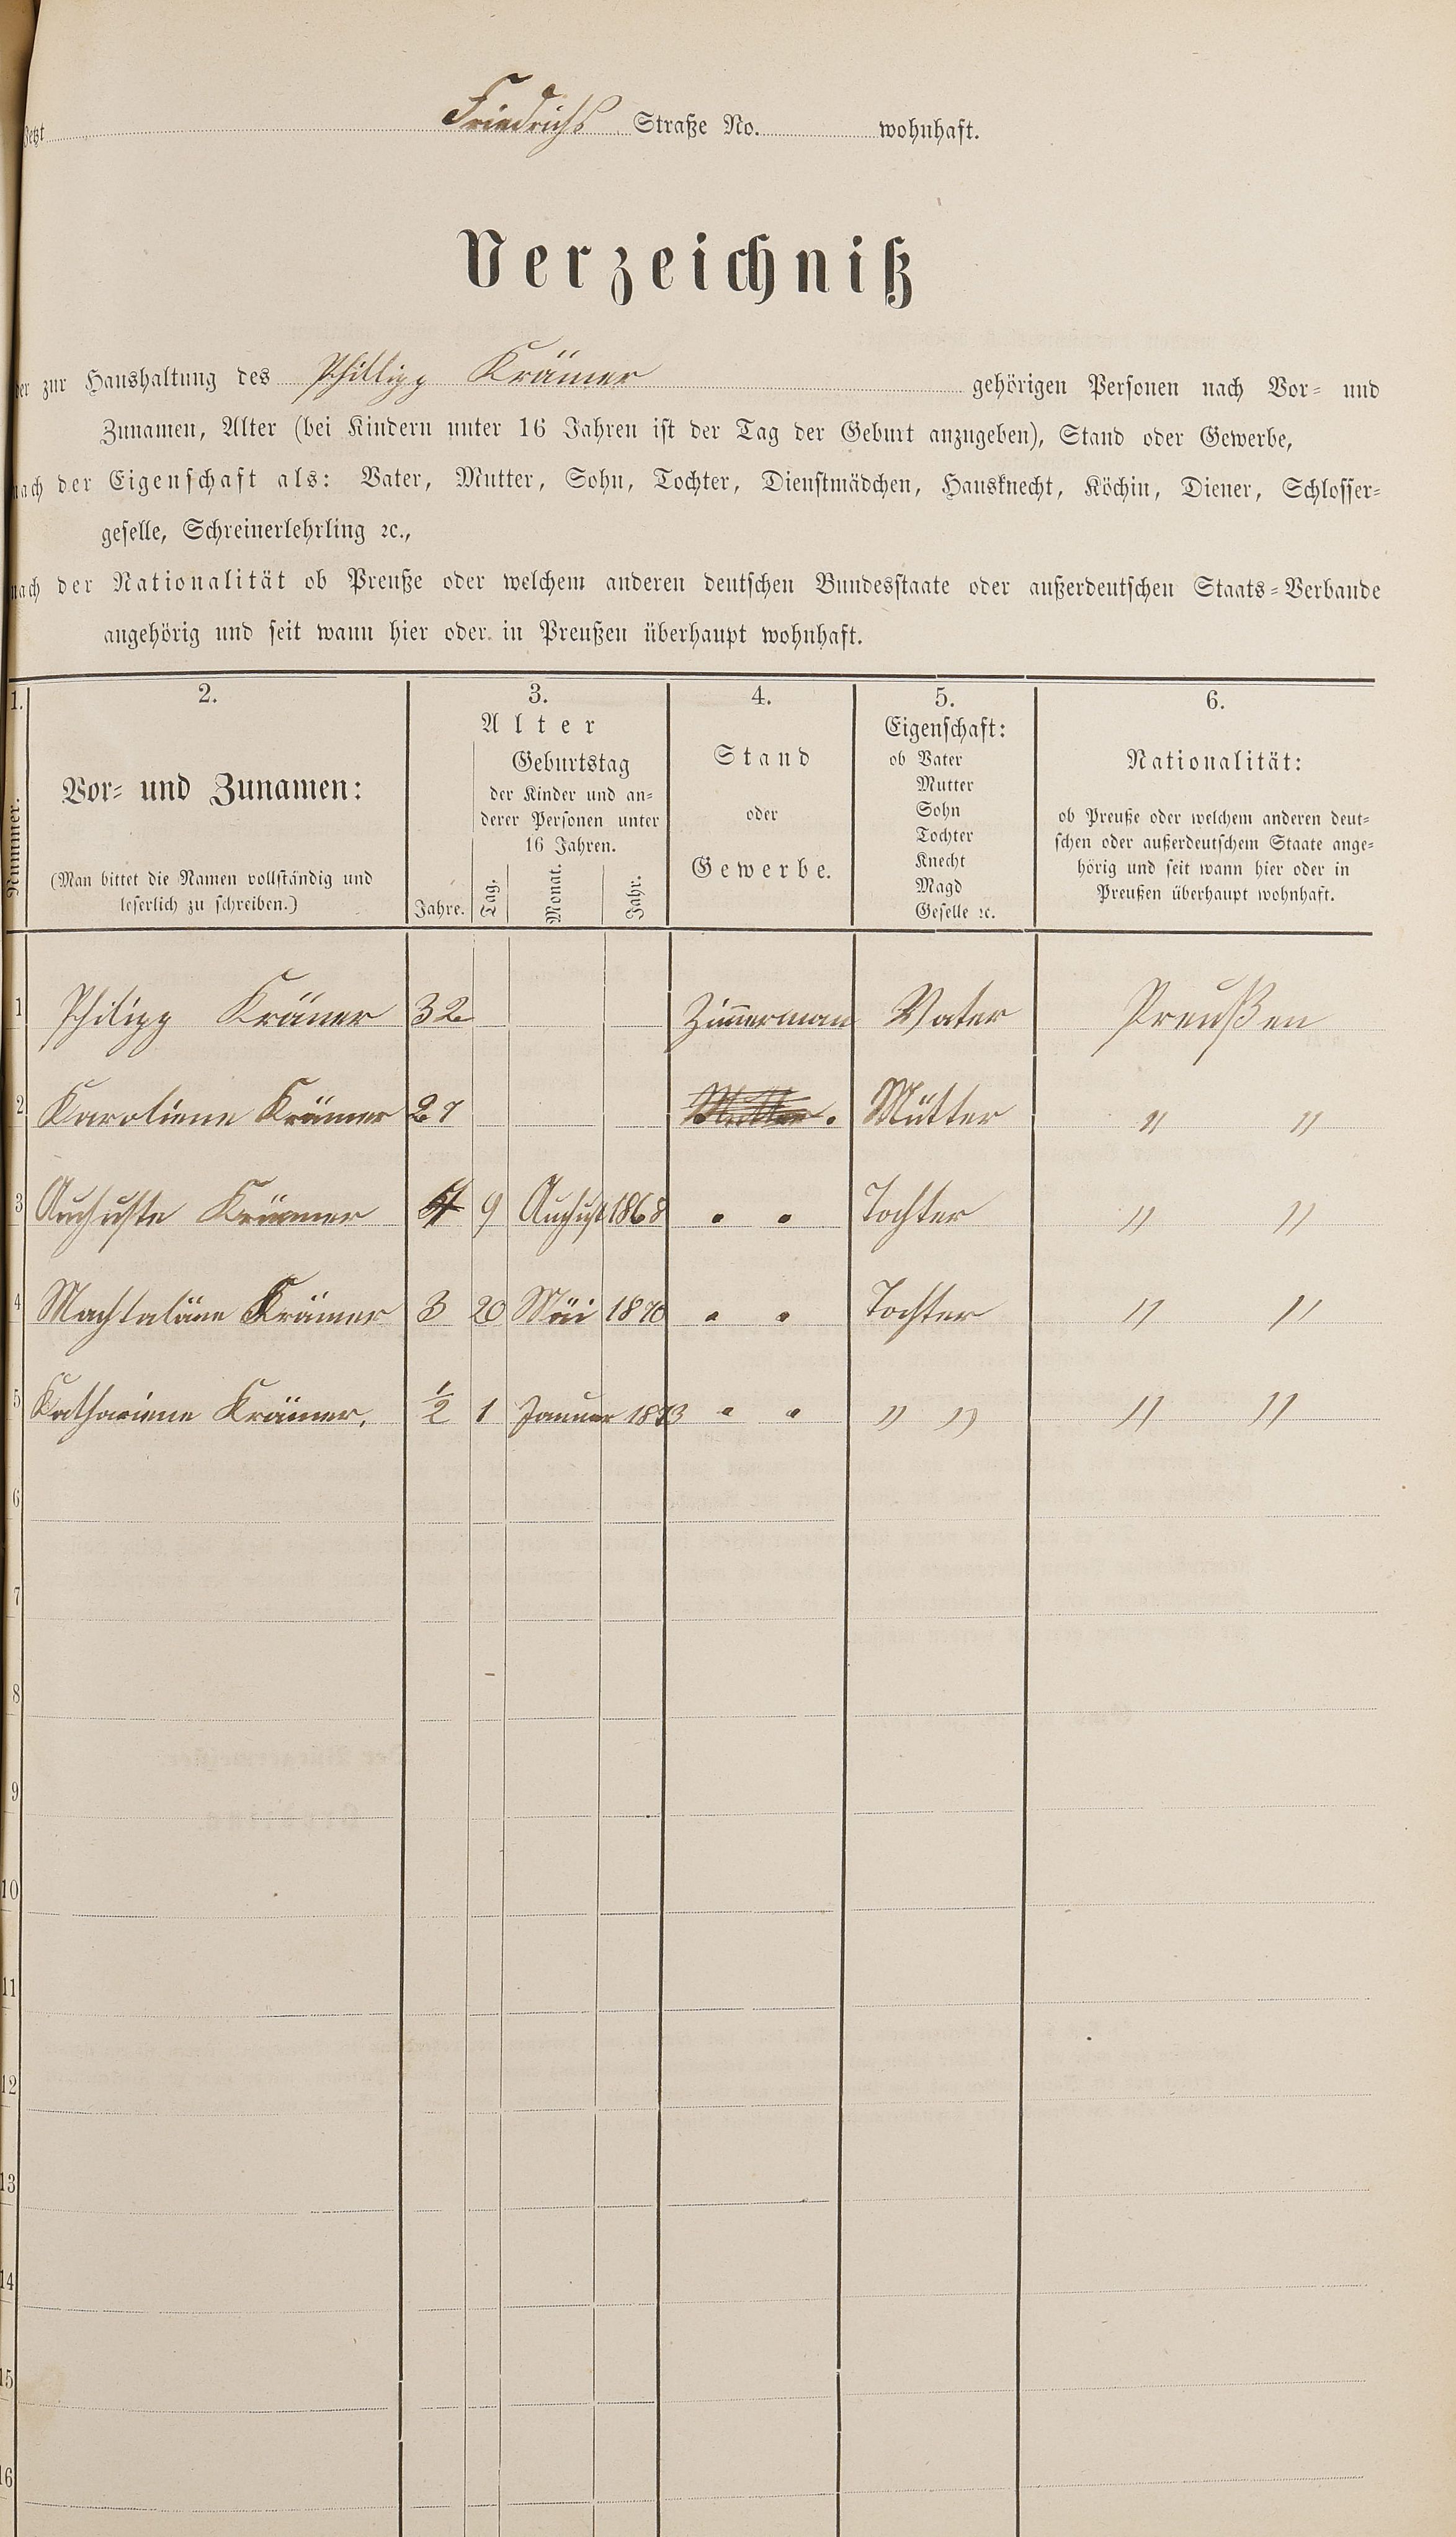 Jetzt Friedrichs Straße No. wohnhaft.
Verzeichniß
der zur Haushaltung des Phillipp Krämer gehörigen Personen nach Vor- und
Zunamen, Alter (bei Kindern unter 16 Jahren ist der Tag der Geburt anzugeben), Stand oder Gewerbe,
nach der Eigenschaft als: Vater, Mutter, Sohn, Tochter, Dienstmädchen, Hausknecht, Köchin, Diener, Schlosser-
geselle, Schreinerlehrling ꝛc.,
nach der Nationalität ob Preuße oder welchem anderen deutschen Bundesstaate oder außerdeutschen Staats-Verbande
angehörig und seit wann hier oder in Preußen überhaupt wohnhaft.
1.
Nummer.
2.
Vor- und Zunamen:
(Man bittet die Namen vollständig und
leserlich zu schreiben.)
3.
Alter
Jahre.
Geburtstag
der Kinder und an-
derer Personen unter
16 Jahren.
Tag. Monat. Jahr.
4.
Stand
oder
Gewerbe.
5.
Eigenschaft:
ob Vater
Mutter
Sohn
Tochter
Knecht
Magd
Geselle ꝛc.
6.
Nationalität:
ob Preuße oder welchem anderen deut-
schen oder außerdeutschem Staate ange-
hörig und seit wann hier oder in
Preußen überhaupt wohnhaft.
1 Philipp Krämer 32 Zimmerman Vater Preußen
2 Karoliene Krämer 27 Mutter. Mütter " "
3 Auchuste Krämer 9 Auchust 1868 • • Tochter " "
4 Machtaläne Krämer 3 20 Mäi 1870 • • Tochter " "
5 Kathariene Krämer. ½ 1 Januar 1873 • • " " " "
6
7
8
9
10
11
12
13
14
15
16